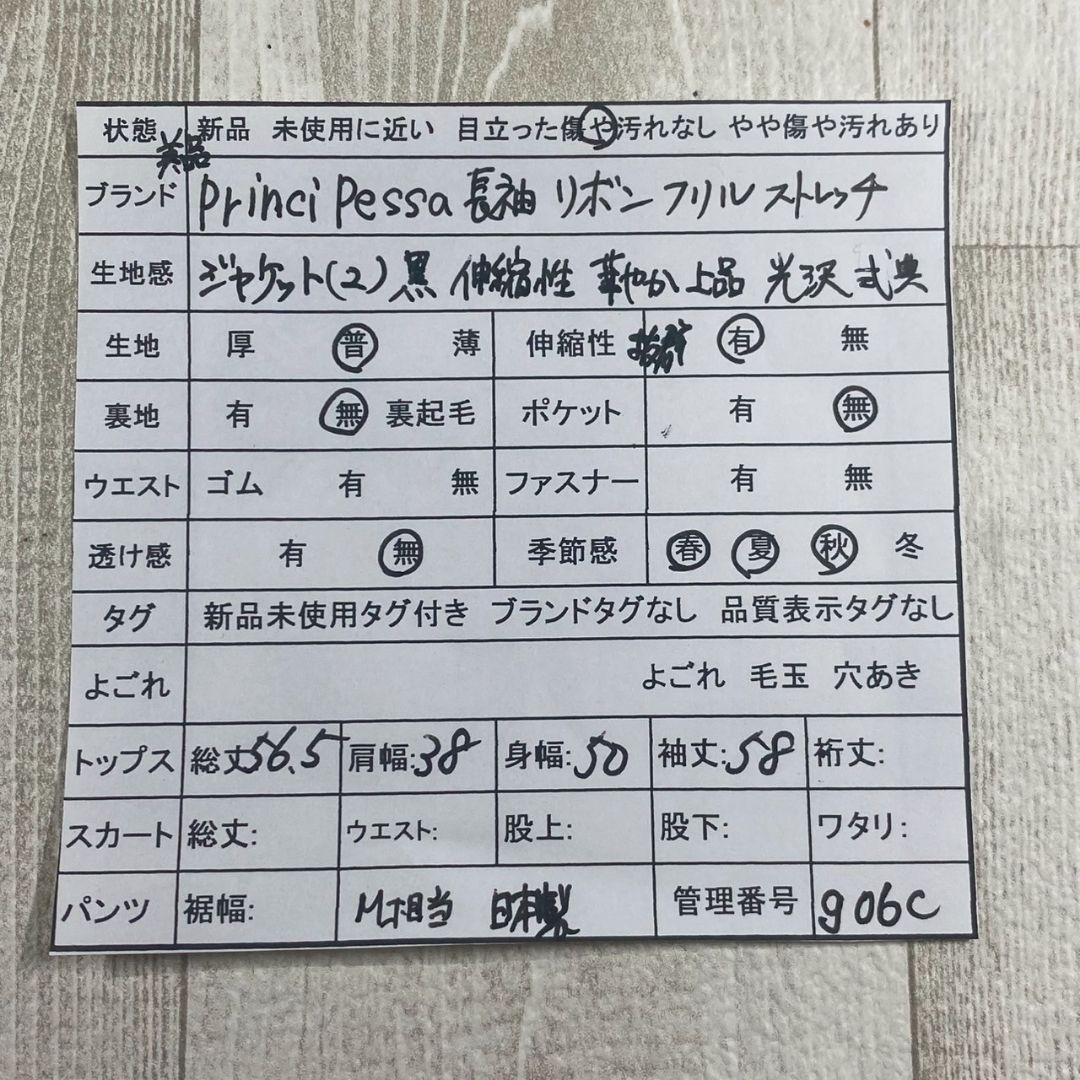 状態 新品 未使用に近い 目立った傷や汚れなし やや傷や汚れあり
美品
ブランド Princi Pessa 長袖 リボン フリル ストレッチ
生地感 ジャケット(2) 黒 伸縮性 華やか 上品 光沢 式典
生地 厚 普 薄 伸縮性 有 無
裏地 有 無 裏起毛 ポケット 有 無
ウエスト ゴム 有 無 ファスナー 有 無
透け感 有 無 季節感 春 夏 秋 冬
タグ 新品未使用タグ付き ブランドタグなし 品質表示タグなし
よごれ よごれ 毛玉 穴あき
トップス 総丈56.5 肩幅:38 身幅:50 袖丈:58 裄丈:
スカート 総丈: ウエスト: 股上: 股下: ワタリ:
パンツ 裾幅: M相当 日本製 管理番号 906C